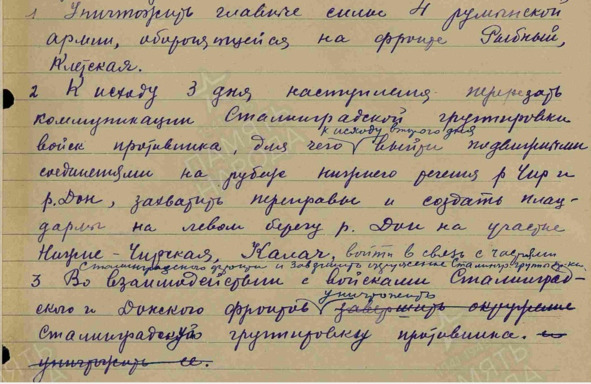 1 Уничтожить главные силы 4 румынской
армии, обороняющейся на фронте Рыбный,
Клетская.
2 К исходу 3 дня наступления перерезать
коммуникации Сталинградской группировки
к исходу второго дня
войск противника, для чего выйти подвижными
соединениями на рубеж нижнего течения р Чир и
р. Дон, захватить переправы и создать плац-
дармы на левом берегу р. Дон на участке
Нижне-Чирская, Калач, войти в связь с частями
Сталинградского фронта и завершить окружение Сталингр. группы пр-ка.
3 Во взаимодействии с войсками Сталинград-
уничтожить
ского и Донского фронтов завершить окружение
Сталинградскую группировку противника. и
уничтожить ее.
ПАМЯТЬ
НАРОДА